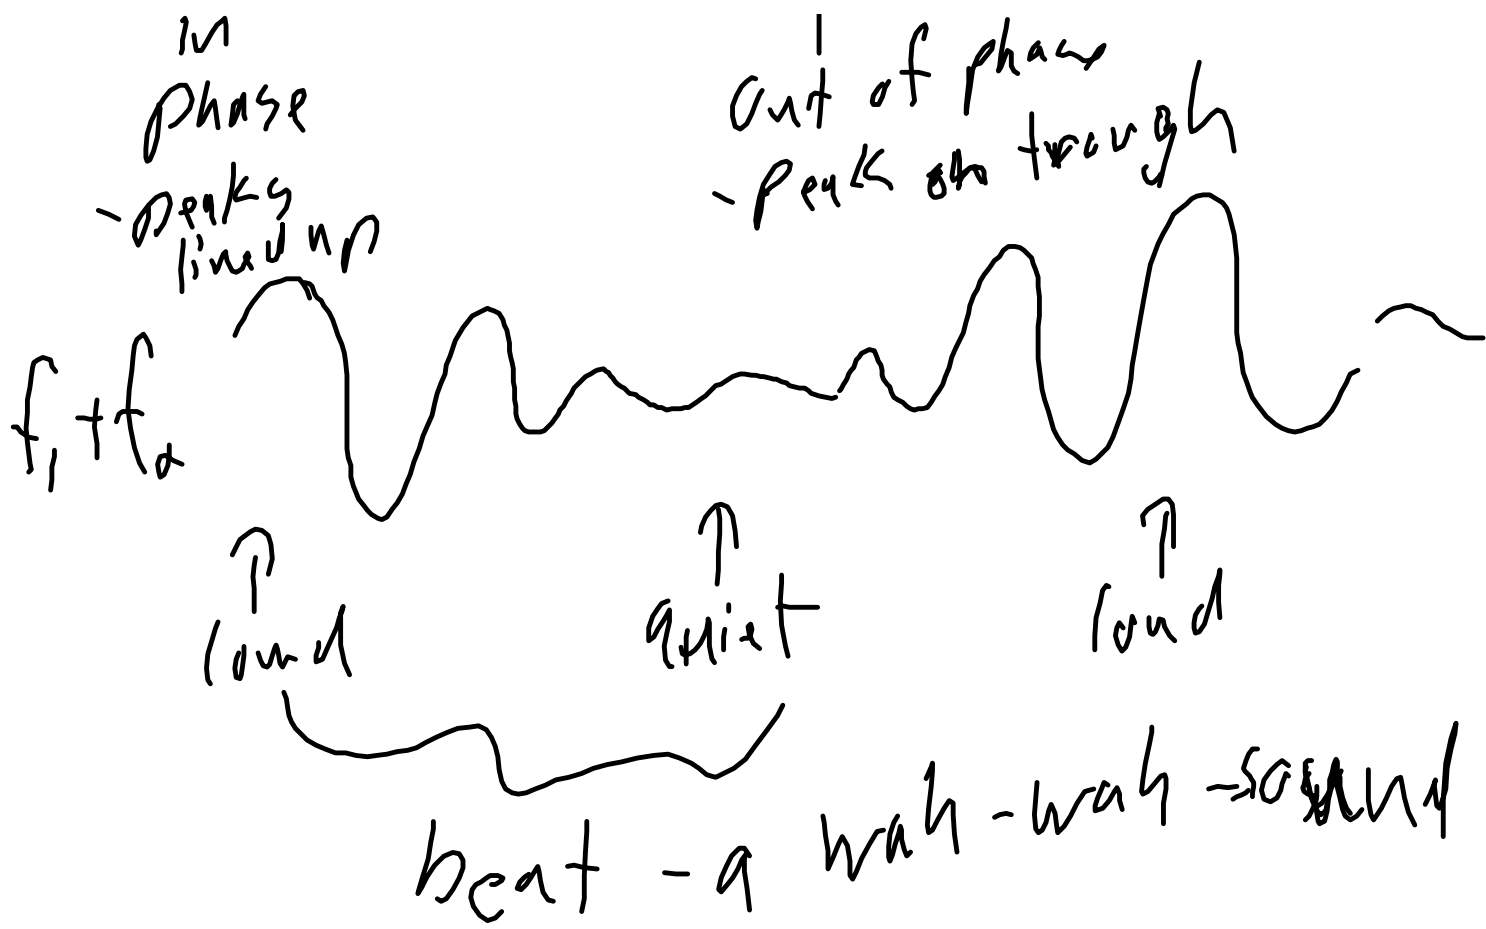 in
phase
- peaks
lined up
out of phase
- peak on trough
f₁ + f₂
loud
quiet
loud
beat - a wah - wah - sound